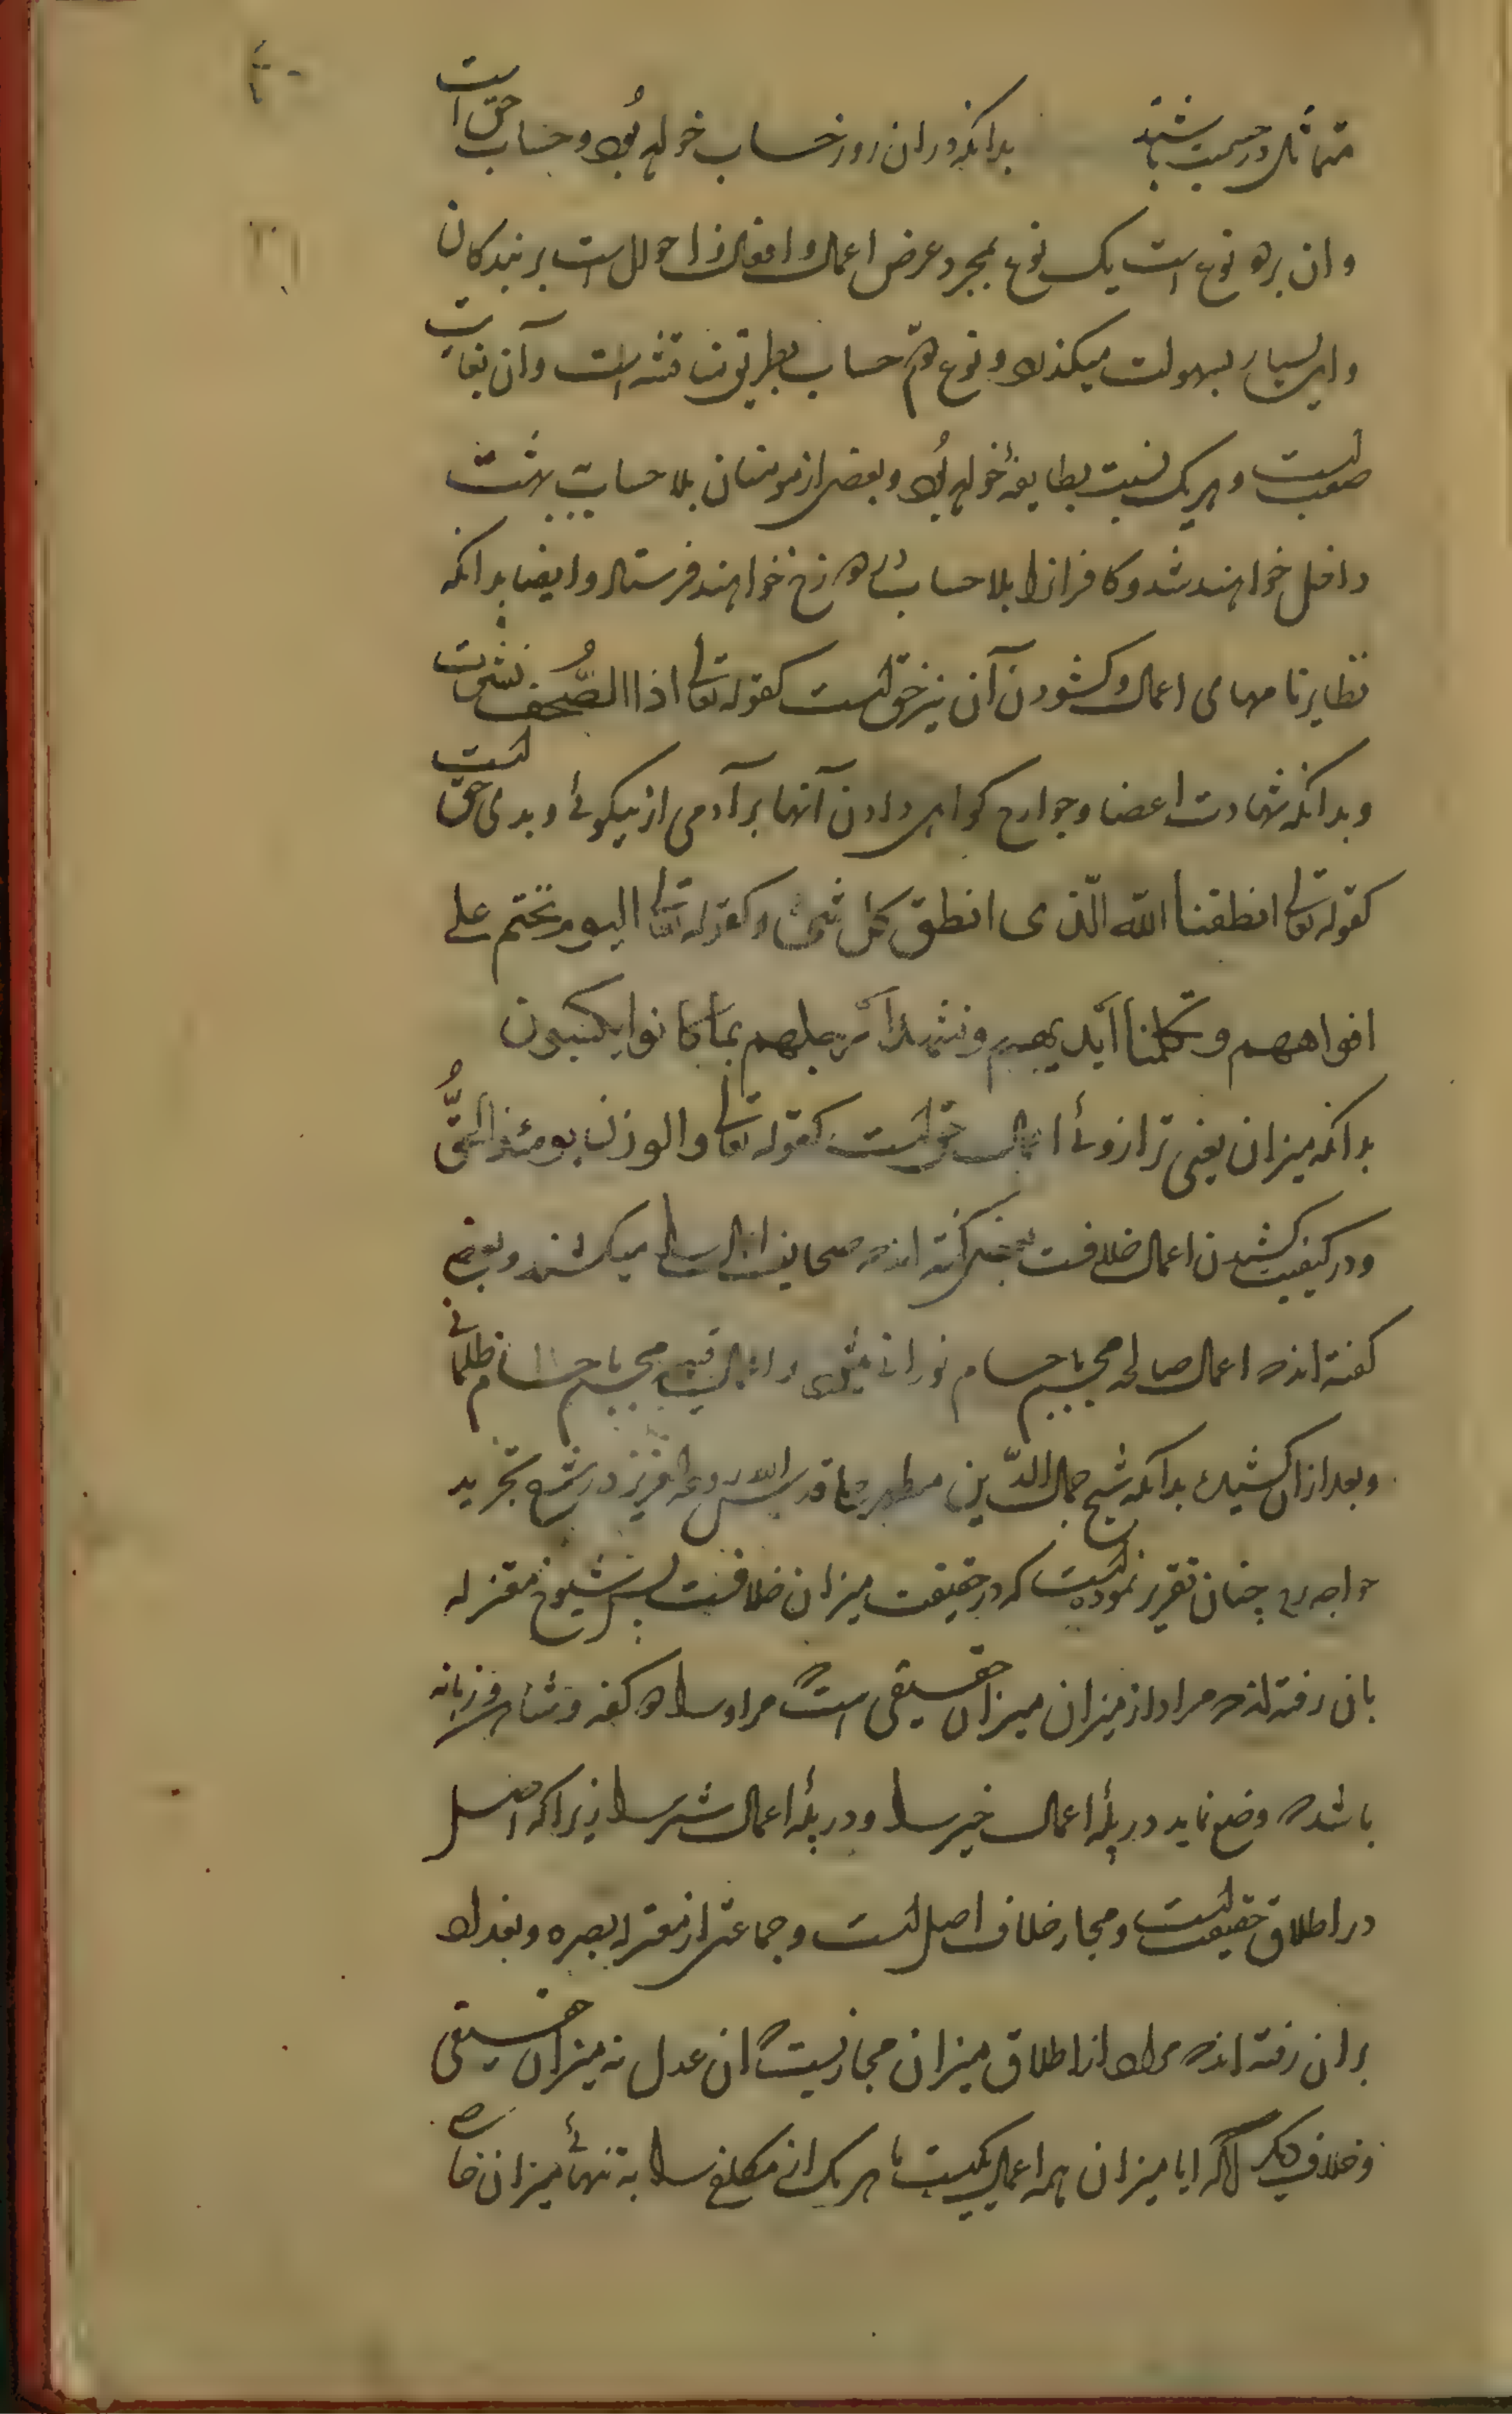 متماثل در حسمیت باشند بدانکه در ان روز حساب خواهد بود و حساب حق است
و ان بر دو نوع است یک نوع بمجرد عرض اعمال و افعال و احوال است بر بندکان
و این بسیار بسهولت میکذرد و نوع دوّم حساب بطریق مناقشه است و آن بغایت
صعب است و هر یک نسبت بطایفۀ خواهد بود و بعضی از مومنان بلا حساب به بهشت
داخل خواهند شد و کافرانرا بلا حساب بدوزخ خواهند فرستاد و ایضا بدانکه
تطایر نامهای اعمال و کشودن آن نیز حق است کقوله تعالی اذا الصُّحف نشرت
و بدانکه شهادت اعضا و جوارح کواهی دادن آنها بر آدمی از نیکوئی و بدی حق است
کقوله تعالی انطقنا الله الّذی انطق کل شیء و کقوله تعالی الیوم نختم علی
افواههم و تکلمنا آیدیهم و تشهد ارجلهم بما کانوا یکسبون
بدانکه میزان یعنی ترازوئے اعمال حق است کقوله تعالی والوزن یومئذ الحقُّ
و در کیفیت کشیدن اعمال خلافست بعضی کفته اند که صحایف اعمال را میکشند و بعضی
کفته اند که اعمال صالحه مجسم باجسام نورانی میشود و اعمال قبیحه مجسم باجسام ظلمانی
و بعد از ان کشیدن بدانکه شیخ جمال الدّین مطهر حلی قدس الله روحه العزیز در شرح تجرید
خواجه ره چنان تقریر نموده است که در حقیقت میزان خلافست پس شیوخ معتزله
بان رفته اند که مراد از میزان میزان حقیقی است که مر او را دو کفه و شاهین و زبانه
باشد که وضع نماید در پلۀ اعمال خیر را و در پلۀ اعمال شر را زیرا که اصل
در اطلاق حقیقت است و مجاز خلاف اصل است و جماعتی از معتزله بصره و بغداد
بران رفته اند که مراد از اطلاق میزان مجازیست که ان عدل نه میزان حقیقی
و خلاف دیکر انکه ایا میزان همه اعمال یکیست یا هر یک از مکلف را به تنهائی میزان خاص